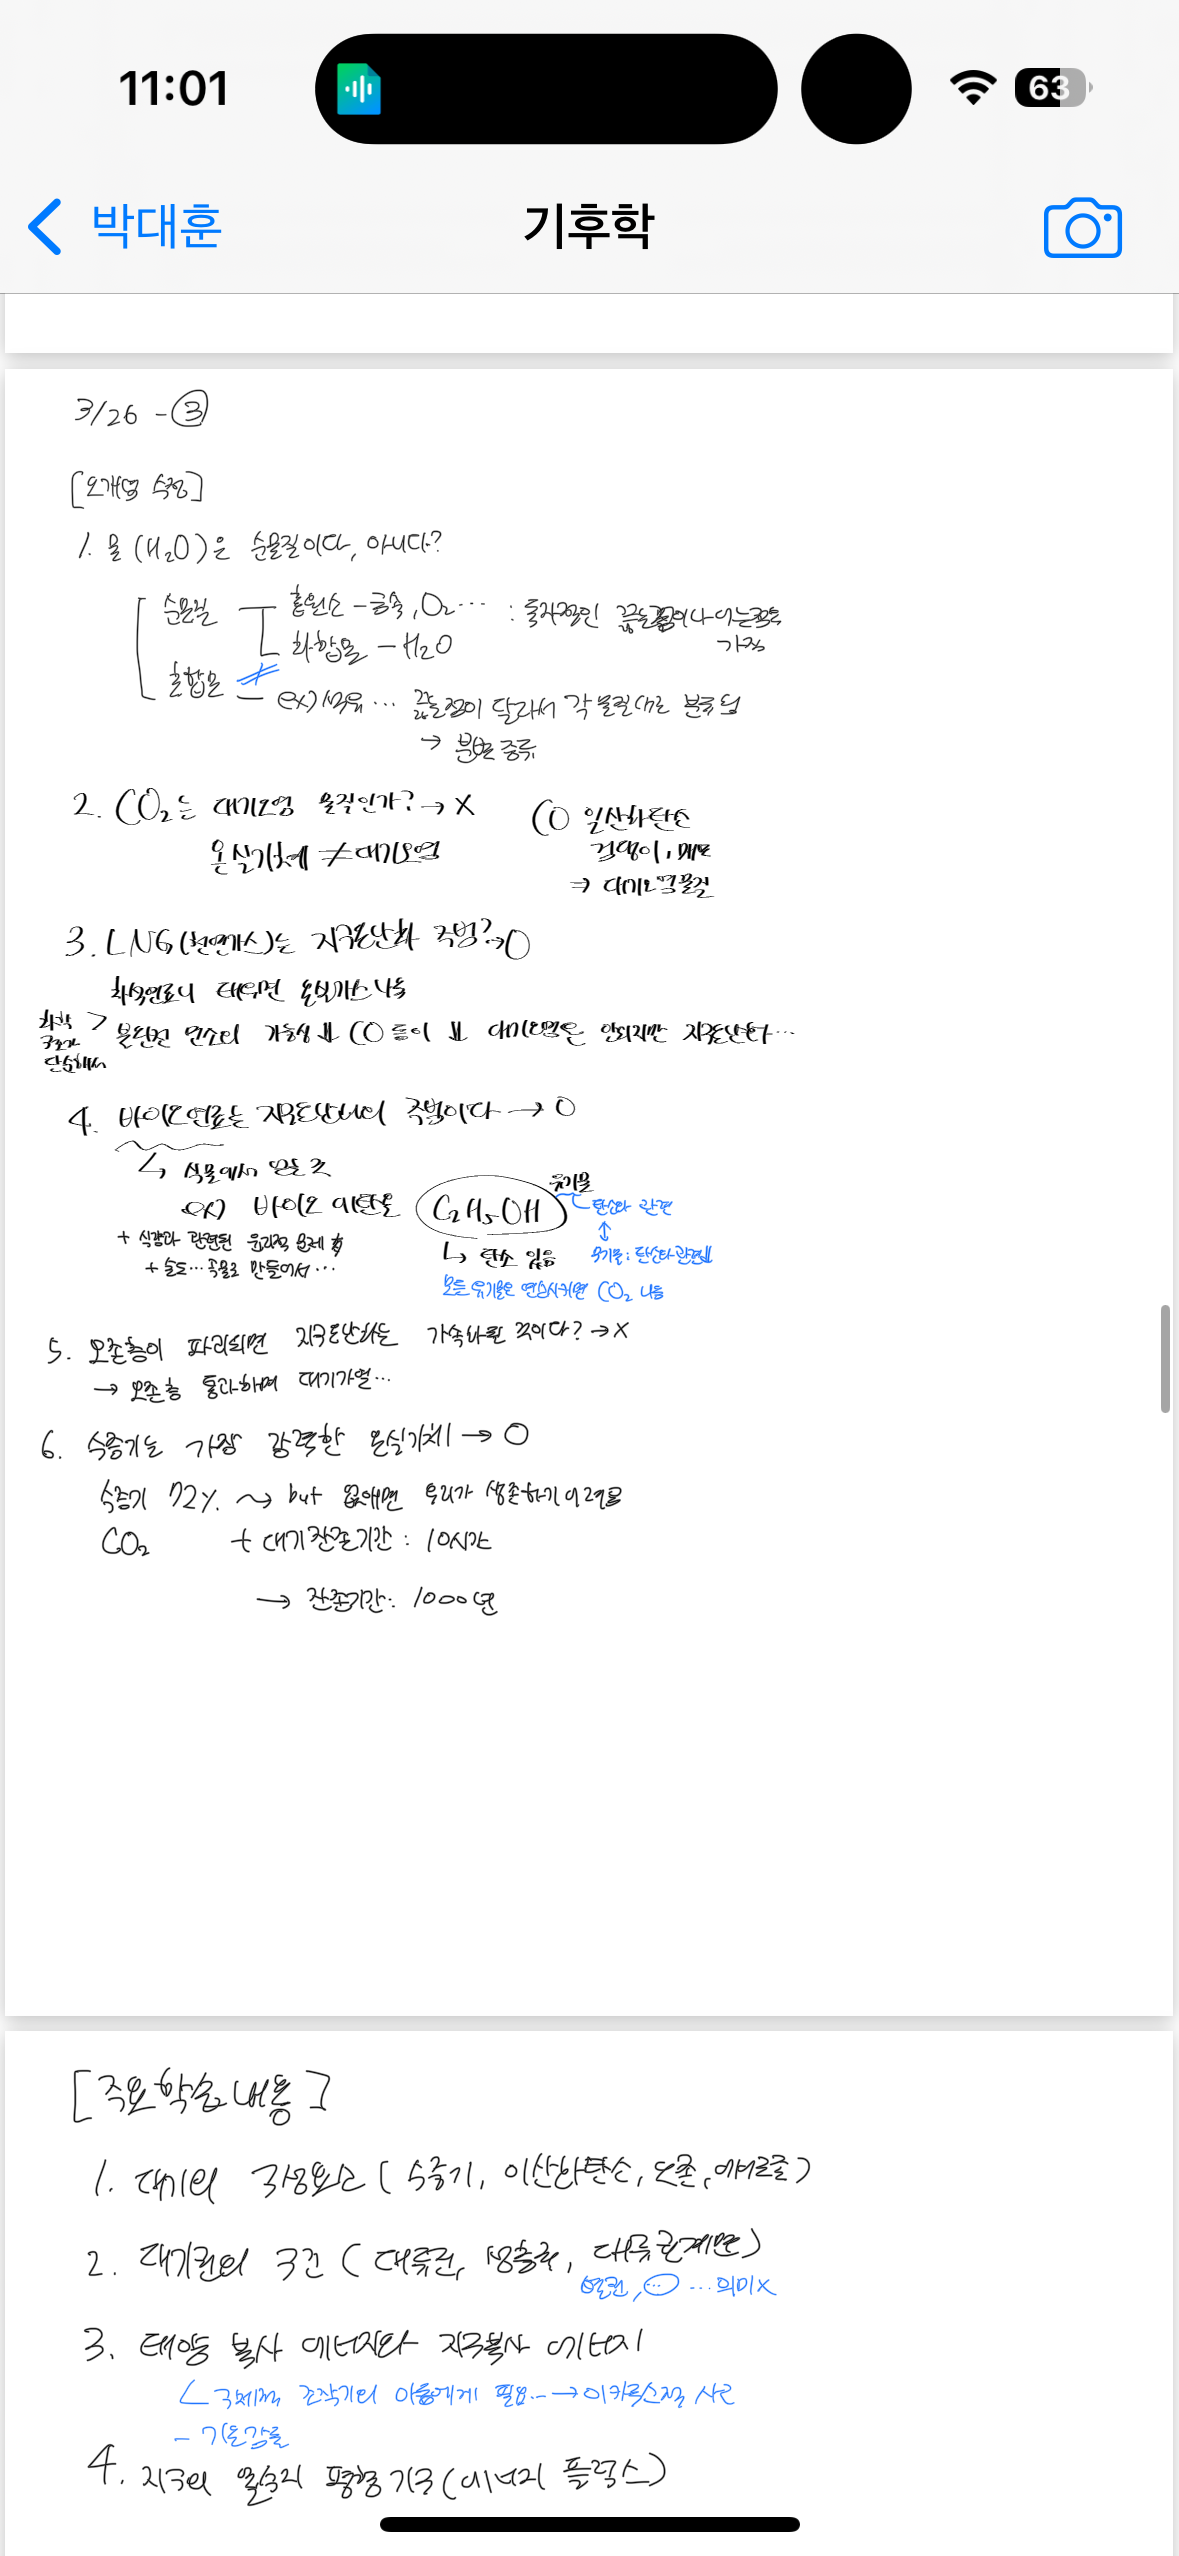 11:01
63
박대훈
기후학
3/26 - ③
[오개념 수정]
1. 물 (H₂O)은 순물질이다, 아니다?
순물질
홑원소 - 금속, O₂ ··· : 독자적인 끓는점이나 어는점을 가짐
화합물 - H₂O
혼합물 - ex) 석유 ··· 끓는점이 달라서 각 물질대로 분류됨
→ 분별 증류
2. CO₂는 대기오염 물질인가? → X
온실기체 ≠ 대기오염
CO 일산화탄소
→ 대기오염물질
3. LNG (천연가스)는 지구온난화 주범? → O
화석연료니 태우면 온실가스 나옴
화학 구조가 단순해서 > 불완전 연소의 가능성 ⇓ CO 등이 ⇓ 대기오염은 안되지만 지구온난화 ···
4. 바이오연료는 지구온난화의 주범이다 → O
↳ 식물에서 얻는 것
ex) 바이오 에탄올 C₂H₅OH
유기물
탄소와 관련
↕
+ 식량과 관련된 윤리적 문제
↳ 탄소 있음
무기물 : 탄소와 관련
+ 술도 ··· 곡물로 만들어서 ···
모든 유기물은 연소시키면 CO₂ 나옴
5. 오존층이 파괴되면 지구온난화는 가속화될 것이다? → X
→ 오존층 통과하며 대기가열 ···
6. 수증기는 가장 강력한 온실기체 → O
수증기 72% but 없애면 우리가 생존하기 어려움
CO₂ + 대기잔존기간 : 10시간
→ 잔존기간 : 1000년
[주요 학습 내용]
1. 대기의 구성요소 (수증기, 이산화탄소, 오존, 에어로졸)
2. 대기권의 구조 (대류권, 성층권, 대류권계면)
열권, ··· 의미 X
3. 태양 복사 에너지와 지구복사 에너지
↳ 구체적 조작기의 아동에게 필요 ·· → 이카루스적 사고
- 기온감률
4. 지구의 열수지 평형 기구 (에너지 플럭스)